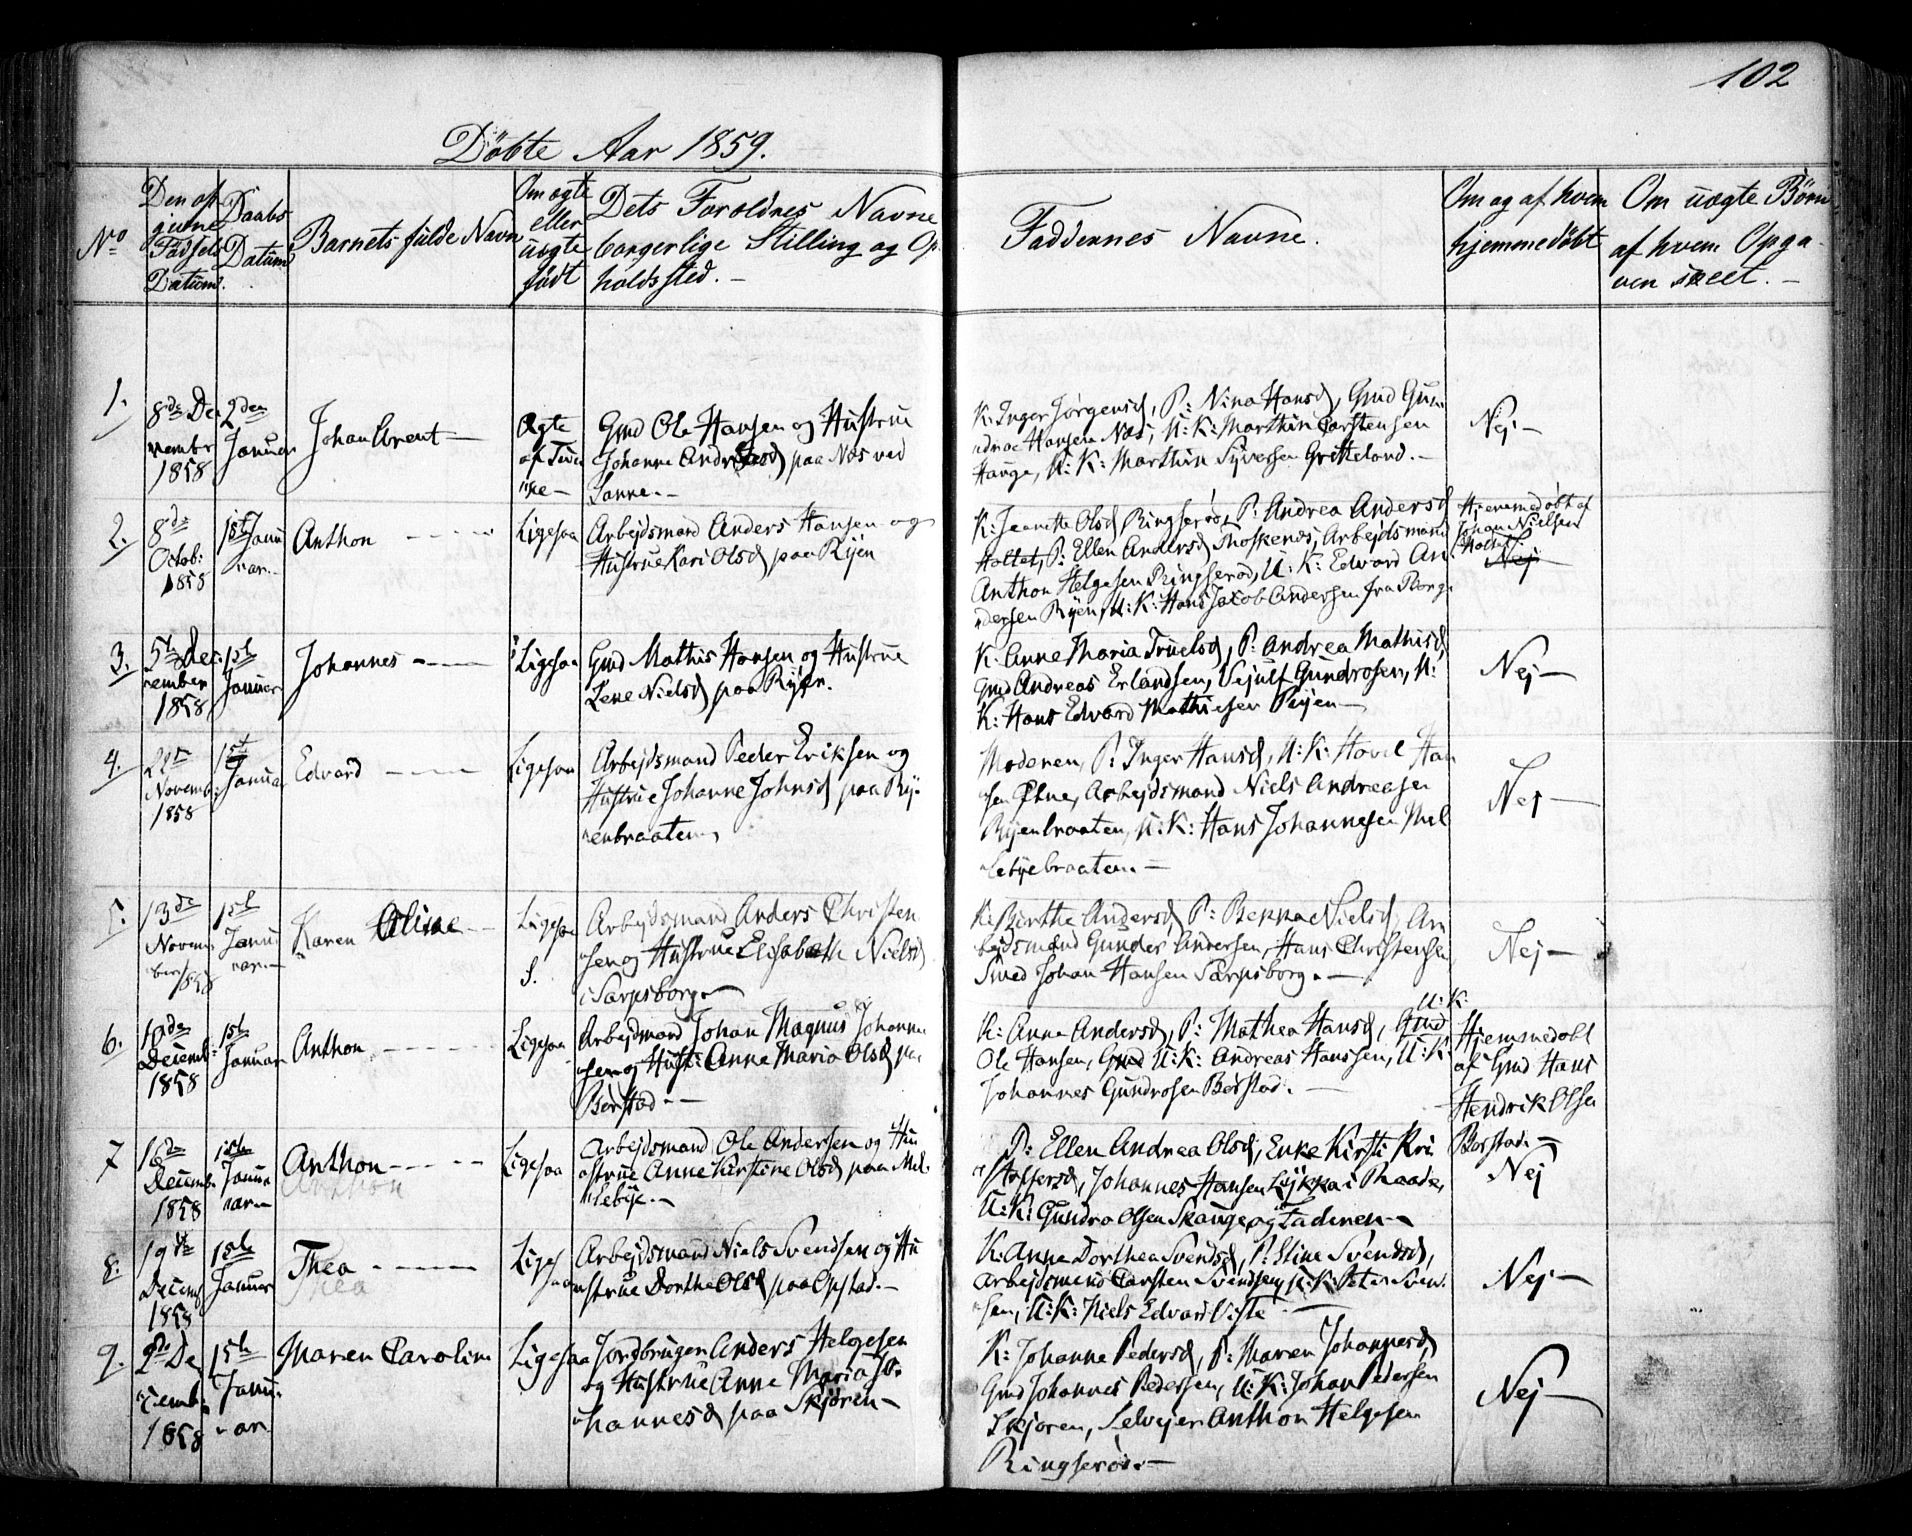 102
Döbte Aar 1859.
No
Den op
givne
Födsels
Datum.
Daabs
Datum
Barnets fulde Navn
Om ægte
eller
uægte
født
Dets Foroldres Navne
borgerlige Stilling og Op
holdssted. -
Faddernes Navne.
Om og af hvem
hjemmedöbt
Om uægte Börn
af hvem Opga-
ven skeet. -
1.
8de De
cember
1858
2den
Januar
Johan Arent
Ægte
Gmd Ole Hansen og Hustrue
Johanne Andreasd paa Næs ved
Sanne. -
K: Inger Jörgensd, P: Nina Hansd, Gmd Gun
Hansen Næs, U: K: Marthin Carstensen
Hauge, U: K: Marthin Syversen Gretteland. -
Nej -
2.
8de
Octob:
1858
1ste Janu
var. -
Anthon
Ligesaa
Arbejdsmand Anders Hansen og
Hustrue Kari Olsd paa Ryen
K: Jeanette Olsd Ringseröd, P: Andrea Andersd
Holtet, P: Ellen Andersd Moskenæs, Arbejdsmand
Anthon Helgesen Ringseröd, U: K: Edvard An
dersen Ryen, U: K: Hans Jacob Andersen fra Borg
Hjemmedöbt af
Johan Nielsen
Holtet.
Nej
3.
5te Dec:
cember
1858
1ste
Januar
Johannes
Ligesaa
Gmd Mathis Hansen og Hustrue
Lene Nielsd paa Ryen.
K: Anne Maria Truelsd, P: Andrea Mathisd,
Gmd Andreas Erlandsen, Vejulf Gundrosen, U:
K: Hans Edvard Mathiesen Ryen -
Nej -
4.
Novemb:
1858
1ste
Januar
Edvard
Ligesaa
Arbejdsmand Peder Eriksen og
Hustrue Johanne Johnsd paa Ry-
enbraaten,
Moderen, P: Inger Hansd, U: K: Hovel Han
sen, Arbejdsmand Niels Andreasen
Ryenbraaten, U: K: Hans Johannesen Mel
lebyebraaten. -
Nej -
5.
13de
Novem
ber 1858
1ste
Janu
var. -
Karen Oline
Ligesaa
Arbejdsmand Anders Christen
sen og Hustrue Elisabeth Nielsd
i Sarpsborg. -
K: Berthe Andersd, P: Nielsd, Ar
bejdsmand Gunder Andersen, Hans Christensen
Smed Johan Hansen Sarpsborg. -
Nej -
6.
10de
Decemb:
1858
1ste
Januar
Anthon
Ligesaa
Arbejdsmand Johan Magnus Johanne
sen og Hust: Anne Maria Olsd paa
Berstad. -
U: K:
K: Anne Andersd, P: Mathea Hansd, Gmd
Ole Hansen, Gmd U: K: Andreas Hanssen, U: K:
Johannes Gundrosen Berstad. -
Hjemmedöbt
af Gmd Hans
Hendrik Olsen
Borstad. -
7
16de
Decemb
1858
1ste
Janu
var -
Anthon
Ligesaa
Arbejdsmand Ole Andersen og Hu
strue Anne Kirstine Olsd paa Mel-
lebye. -
P: Ellen Andrea Olsd, Enke Kirsti Kri
stoffersd, Johannes Hansen Lykka i Raade,
U: K: Gundro Olsen Skauge og Faderen. -
Nej
8.
19de
Decemb
1858
1ste
Januar
Thea
Ligesaa
Arbejdsmand Niels Svendsen og Hu
strue Dorthe Olsd paa Opstad. -
K: Anne Dorthea Svendsd, P: Stine Svendsd,
Arbejdsmand Carsten Svendsen, U: K: Peter Sven
sen, U: K: Niels Edvard Viste -
Nej -
9.
2de De
cemb
1858
15de
Janu-
ar
Maren Carolin
Ligesaa
Jordbruger Anders Helgesen
og Hustrue Anne Maria Jo-
hannesd paa Skjören -
K: Johanne Pedersd, P: Maren Johannesd,
Gmd Johannes Pedersen, U: K: Johan Pedersen
Skjoren, Selvejer Anthon Helgesen
Ringseröd. -
Nej -